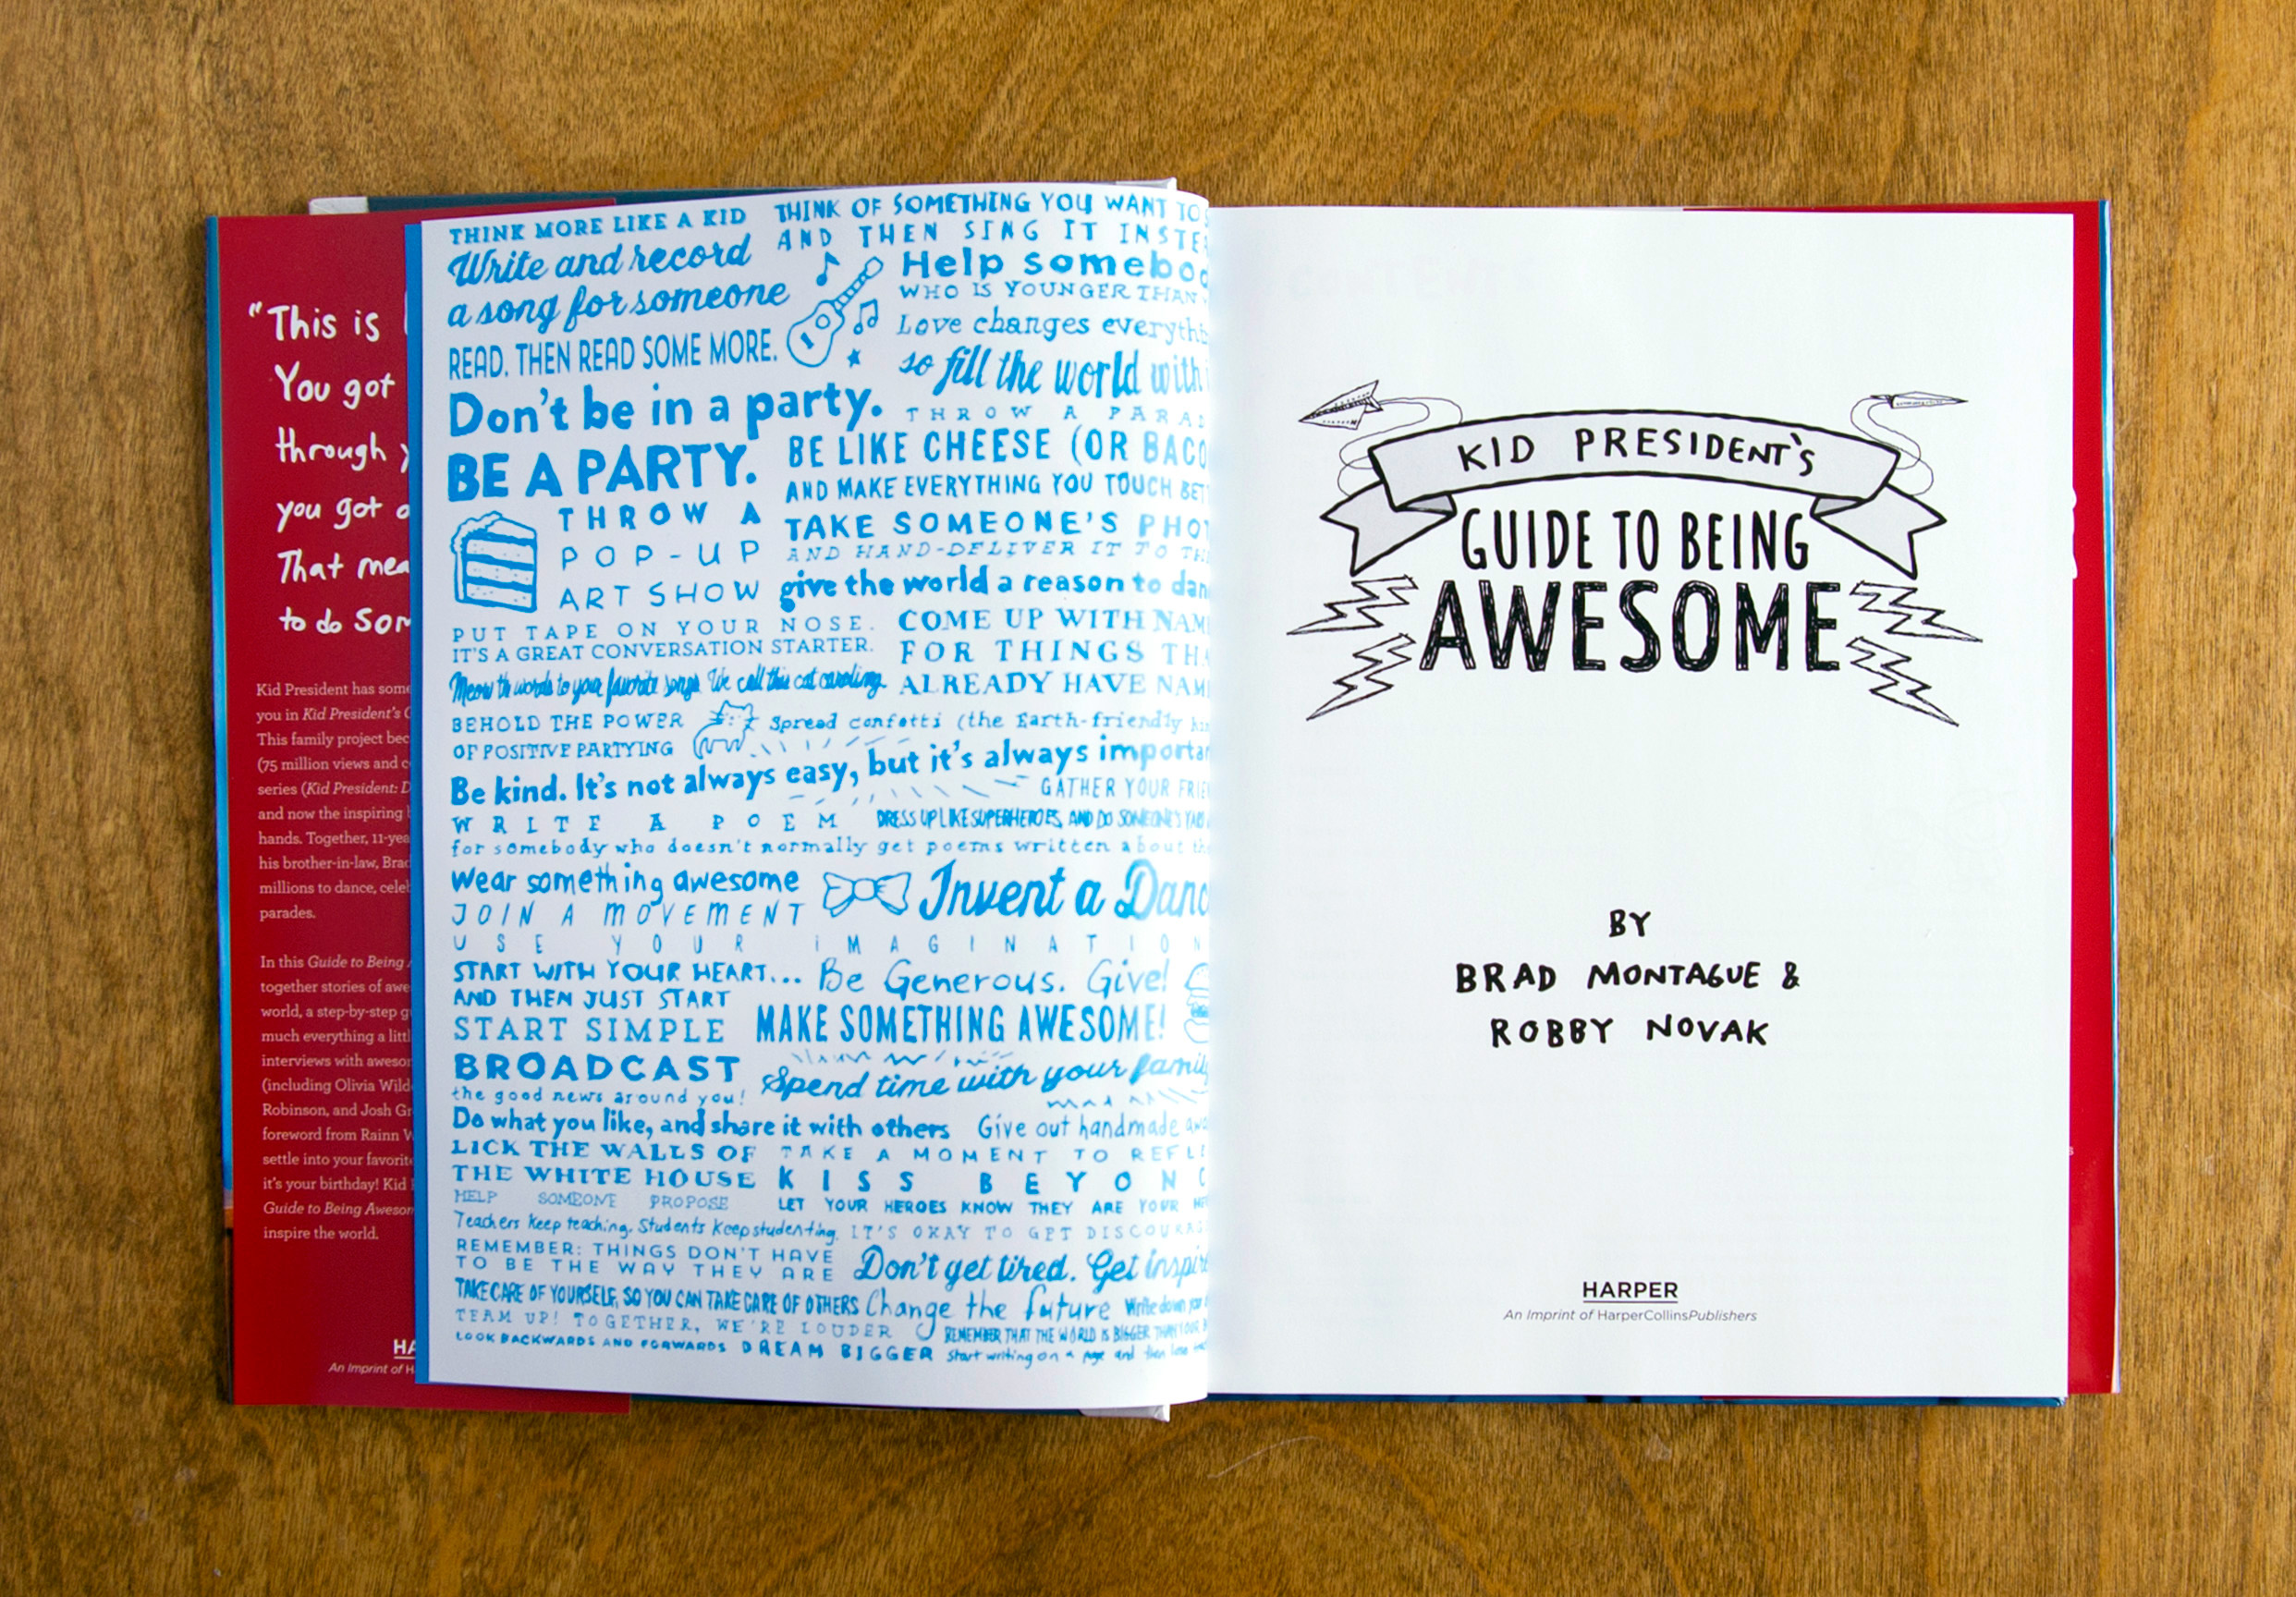 "This is
You got
through
you got
That
to do
Kid President has some
you in Kid President's
This family project
(75 million views and
series (Kid President:
and now the inspiring
hands. Together,
his brother-in-law,
millions to dance,
parades.
In this Guide to Being
together stories of
world, a step-by-step
much everything a
interviews with
(including Olivia
Robinson, and Josh
foreword from Rainn
settle into your
it's your birthday! Kid
Guide to Being
inspire the world.
An Imprint of
THINK MORE LIKE A KID
Write and record
a song for someone
READ. THEN READ SOME MORE.
THINK OF SOMETHING YOU WANT TO
AND THEN SING IT
Help
WHO IS YOUNGER THAN
Love changes
so fill the world with
Don't be in a party.
BE A PARTY.
THROW A
BE LIKE CHEESE (OR
AND MAKE EVERYTHING YOU TOUCH
THROW A
POP-UP
ART SHOW
TAKE SOMEONE'S
AND HAND-DELIVER IT TO
give the world a reason to
PUT TAPE ON YOUR NOSE.
IT'S A GREAT CONVERSATION STARTER.
COME UP WITH
FOR THINGS
ALREADY HAVE
Meow th words to your favorite songs We call this cat caroling.
BEHOLD THE POWER
OF POSITIVE PARTYING
Spread confetti (the Earth-friendly
Be kind. It's not always easy, but it's always
GATHER YOUR
DRESS UP LIKE SUPERHEROES, AND DO SOMEONE'S
WRITE A POEM
for somebody who doesn't normally get poems written about
Wear something awesome
JOIN A MOVEMENT
Invent a
USE YOUR IMAGINATION
START WITH YOUR HEART...
AND THEN JUST START
Be Generous. Give!
START SIMPLE
MAKE SOMETHING AWESOME!
BROADCAST
the good news around you!
Spend time with your
Do what you like, and share it with others
Give out handmade
LICK THE WALLS OF
THE WHITE HOUSE
TAKE A MOMENT TO
KISS
HELP SOMEONE PROPOSE
LET YOUR HEROES KNOW THEY ARE YOUR
Teachers Keep teaching. Students Keep studenting.
IT'S OKAY TO GET
REMEMBER: THINGS DON'T HAVE
TO BE THE WAY THEY ARE
Don't get tired. Get
TAKE CARE OF YOURSELF, SO YOU CAN TAKE CARE OF OTHERS
Change the future
Write down your
TEAM UP! TOGETHER, WE'RE LOUDER
REMEMBER THAT THE WORLD IS BIGGER THAN YOUR
LOOK BACKWARDS AND FORWARDS
DREAM BIGGER
Start writing on a page and then
KID PRESIDENT'S
GUIDE TO BEING
AWESOME
BY
BRAD MONTAGUE &
ROBBY NOVAK
HARPER
An Imprint of HarperCollinsPublishers